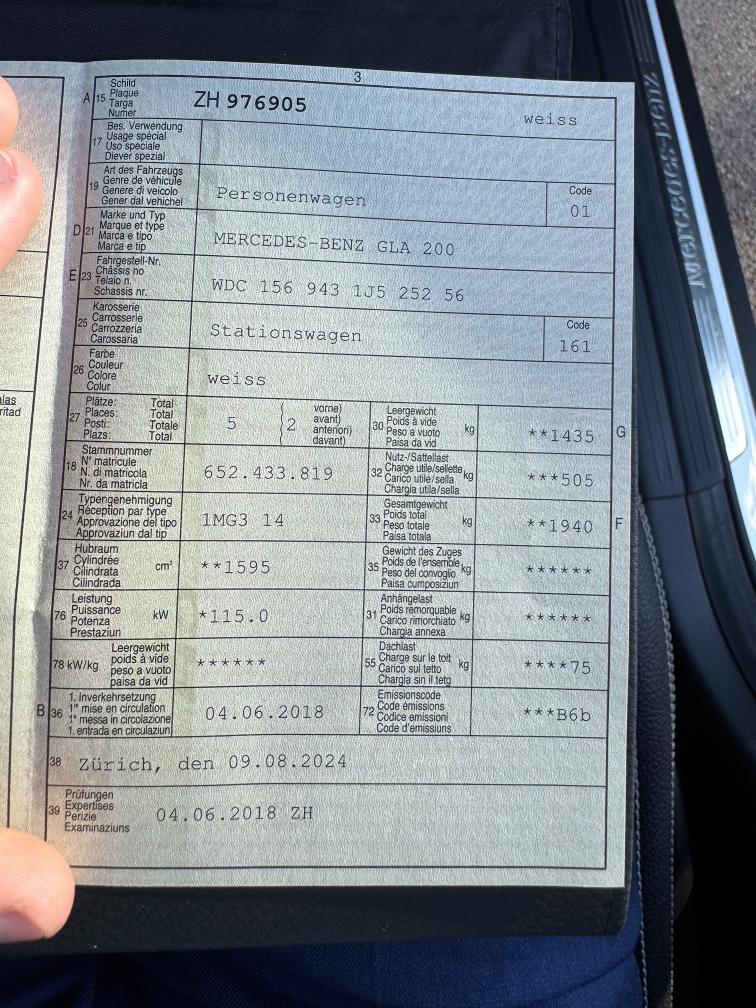 3
A 15 Schild
Plaque
Targa
Numer
ZH 976905
weiss
17 Bes. Verwendung
Usage spécial
Uso speciale
Diever spezial
19 Art des Fahrzeugs
Genre de véhicule
Genere di veicolo
Gener dal vehichel
Personenwagen
Code
01
D 21 Marke und Typ
Marque et type
Marca e tipo
Marca e tip
MERCEDES-BENZ GLA 200
E 23 Fahrgestell-Nr.
Châssis no
Telaio n.
Schassis nr.
WDC 156 943 1J5 252 56
25 Karosserie
Carrosserie
Carrozzeria
Carossaria
Stationswagen
Code
161
26 Farbe
Couleur
Colore
Colur
weiss
27 Plätze: Total
Places: Total
Posti: Totale
Plazs: Total
5
2
vorne)
avant)
anteriori)
davant)
30 Leergewicht
Poids à vide
Peso a vuoto
Paisa da vid
kg
**1435
G
18 Stammnummer
N° matricule
N. di matricola
Nr. da matricla
652.433.819
32 Nutz-/Sattellast
Charge utile/sellette
Carico utile/sella
Chargia utila/sella
kg
***505
24 Typengenehmigung
Réception par type
Approvazione del tipo
Approvaziun dal tip
1MG3 14
33 Gesamtgewicht
Poids total
Peso totale
Paisa totala
kg
**1940
F
37 Hubraum
Cylindrée
Cilindrata
Cilindrada
cm³
**1595
35 Gewicht des Zuges
Poids de l'ensemble
Peso del convoglio
Paisa cumposiziun
kg
******
76 Leistung
Puissance
Potenza
Prestaziun
kW
*115.0
31 Anhängelast
Poids remorquable
Carico rimorchiato
Chargia annexa
kg
******
78 kW/kg
Leergewicht
poids à vide
peso a vuoto
paisa da vid
******
55 Dachlast
Charge sur le toit
Carico sul tetto
Chargia sin il tetg
kg
****75
B 36 1. Inverkehrsetzung
1re mise en circulation
1a messa in circolazione
1. entrada en circulaziun
04.06.2018
72 Emissionscode
Code émissions
Codice emissioni
Code d'emissiuns
***B6b
38 Zürich, den 09.08.2024
39 Prüfungen
Expertises
Perizie
Examinaziuns
04.06.2018 ZH
Mercedes-Benz